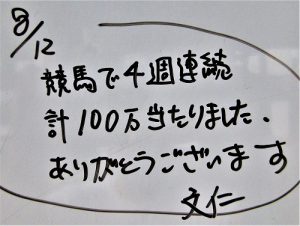 8/12
競馬で4週連続
計100万当たりました.
ありがとうございます
文仁